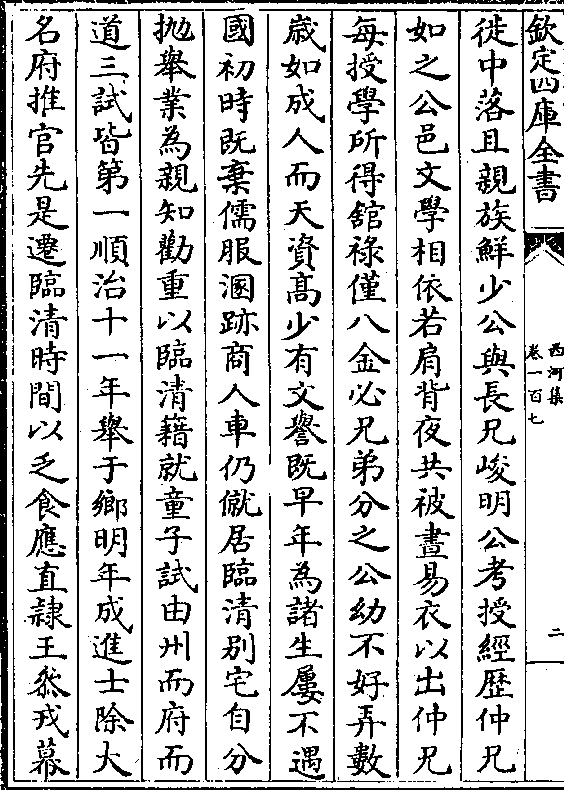 欽定四庫全書
西河集
卷一百七
二
徙中落且親族鮮少公與長兄峻明公考授經歴仲兄
如之公邑文學相依若肩背夜共被晝易衣以出仲兄
每授學所得舘祿僅八金必兄弟分之公幼不好弄數
歳如成人而天資髙少有文譽既早年為諸生屢不遇
國初時既棄儒服溷跡商人車仍僦居臨清别宅自分
抛舉業為親知勸重以臨清籍就童子試由州而府而
道三試皆第一順治十一年舉于鄉明年成進士除大
名府推官先是遷臨清時間以乏食應直隷王叅戎幕